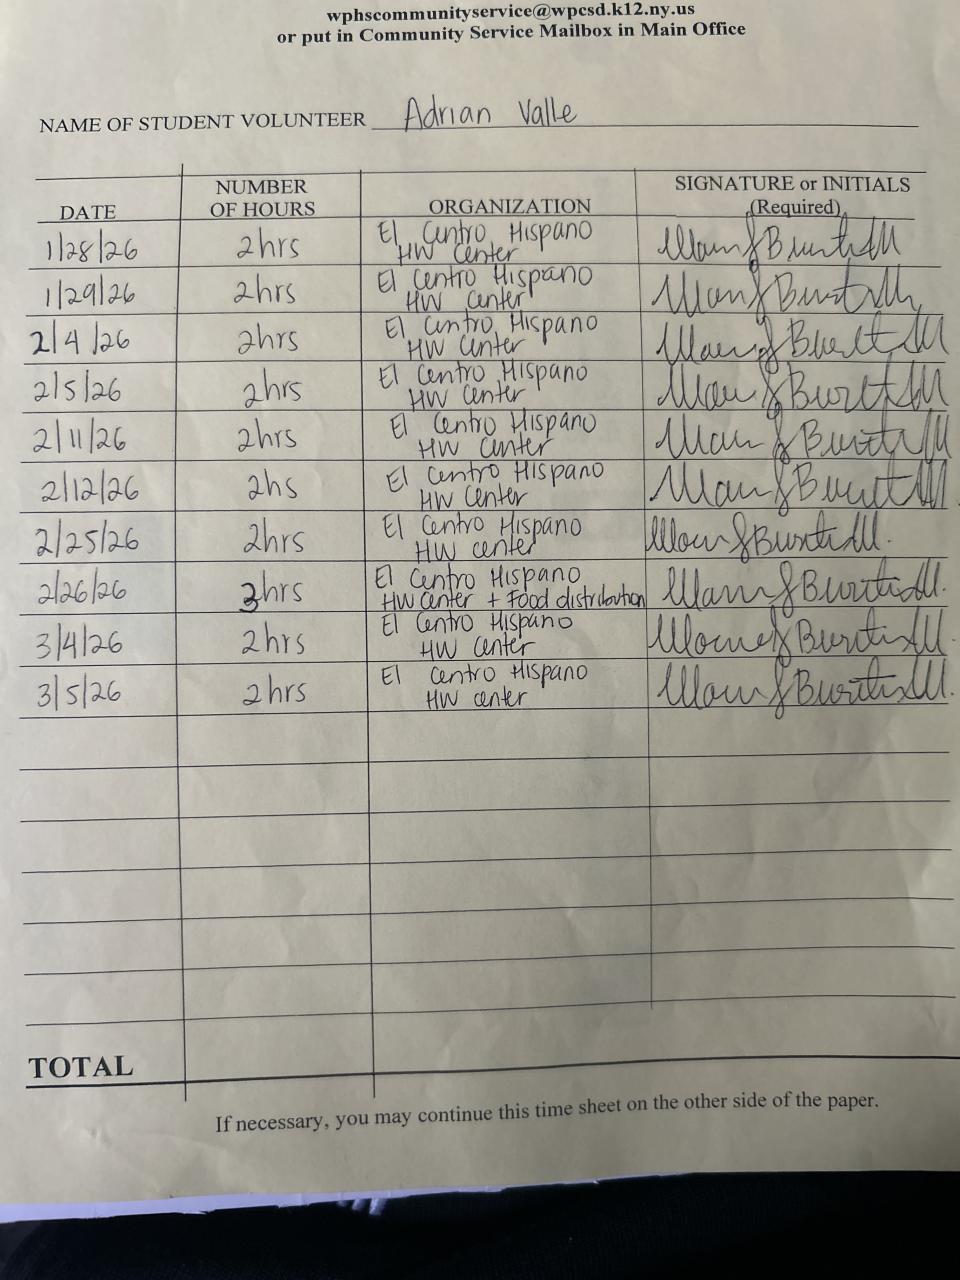 wphscommunityservice@wpcsd.k12.ny.us
or put in Community Service Mailbox in Main Office
NAME OF STUDENT VOLUNTEER Adrian Valle
DATE NUMBER OF HOURS ORGANIZATION SIGNATURE or INITIALS (Required)
1/28/26 2hrs El Centro Hispano HW Center
1/29/26 2hrs El Centro Hispano HW Center
2/4/26 2hrs El Centro Hispano HW Center
2/5/26 2hrs El Centro Hispano HW Center
2/11/26 2hrs El Centro Hispano HW Center
2/12/26 2hs El Centro Hispano HW Center
2/25/26 2hrs El Centro Hispano HW center
2/26/26 3hrs El Centro Hispano HW Center + Food distribution
3/4/26 2hrs El Centro Hispano HW Center
3/5/26 2hrs El Centro Hispano HW center
TOTAL
If necessary, you may continue this time sheet on the other side of the paper.